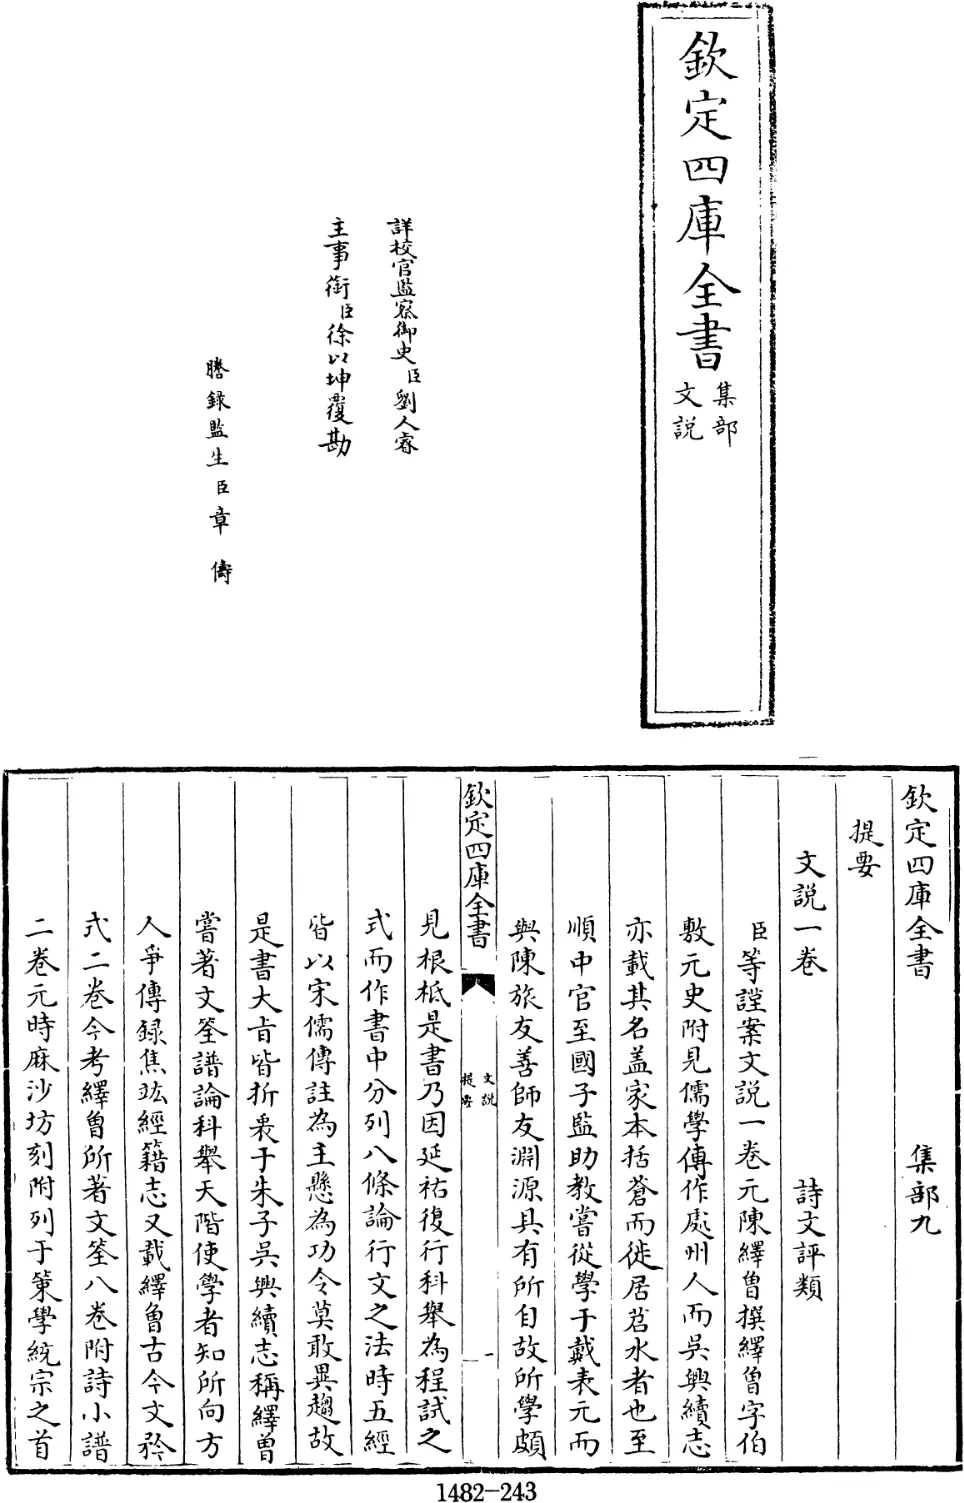 欽定四庫全書
集部
文説
詳校官監察御史臣劉人睿
主事銜臣徐以坤覆勘
謄録監生臣章儔
欽定四庫全書 集部九
提要
文説一卷 詩文評類
臣等謹案文説一卷元陳繹曾撰繹曾字伯
敷元史附見儒學傳作處州人而吳興續志
亦載其名盖家本括蒼而徙居苕水者也至
順中官至國子監助教嘗從學于戴表元而
與陳旅友善師友淵源具有所自故所學頗
欽定四庫全書
文説
提要
一
見根柢是書乃因延祐復行科舉為程試之
式而作書中分列八條論行文之法時五經
皆以宋儒傳註為主懸為功令莫敢異趨故
是書大㫖皆折衷于朱子吳興續志稱繹曾
嘗著文筌譜論科舉天階使學者知所向方
人爭傳録焦竑經籍志又載繹曾古今文矜
式二卷今考繹曾所著文筌八卷附詩小譜
二卷元時麻沙坊刻附列于策學統宗之首
1482-243